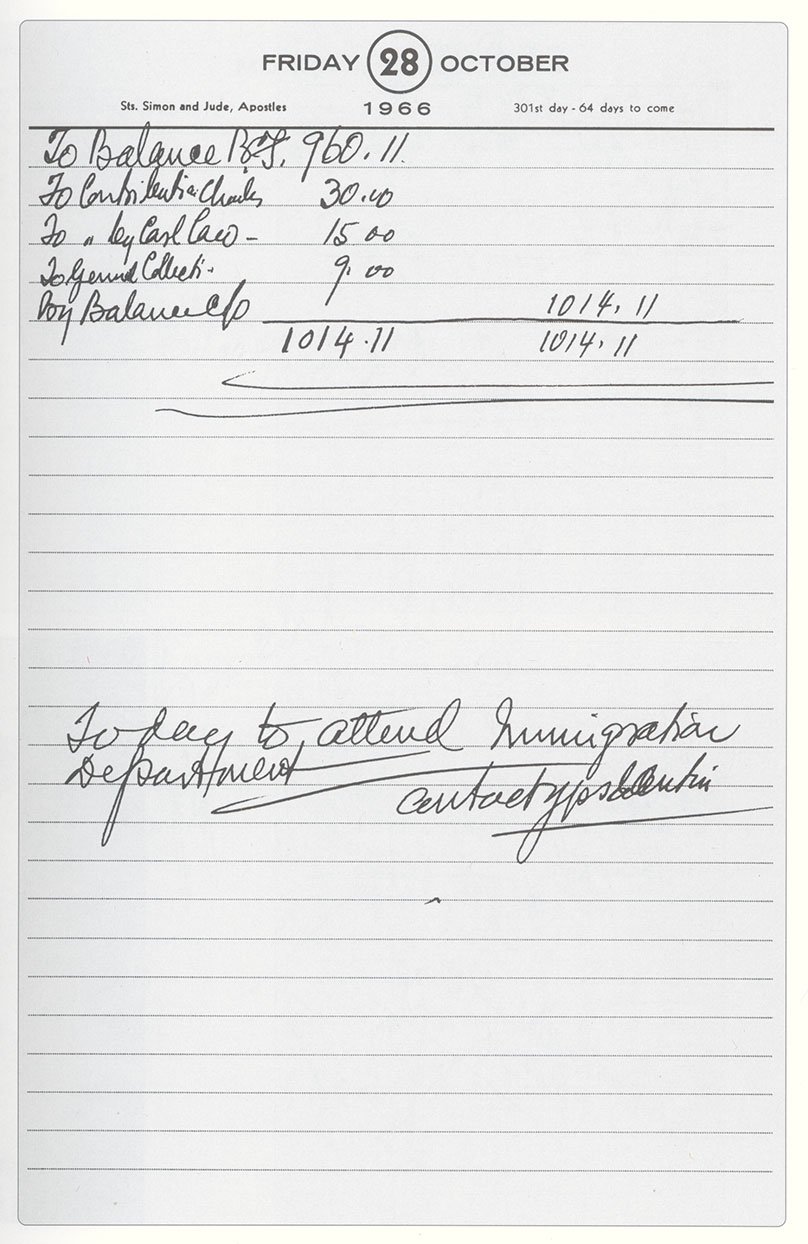 FRIDAY 28 OCTOBER
Sts. Simon and Jude, Apostles 1966 301st day - 64 days to come
To Balance B/f. 960.11.
To Contribution Charles 30.00
To " by Carl 15 00
To General Collecti- 9. 00
By Balance c/o 1014.11
1014.11 1014.11
To day to attend Immigration
Department
contact